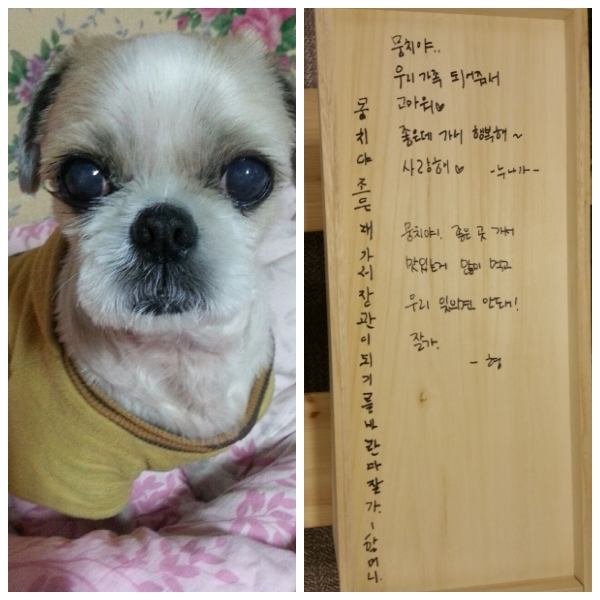 뭉치야..
우리 가족 되어줘서
고마워♡
좋은데 가서 행복해~
사랑해♡ -누나가-
뭉치야! 좋은 곳 가서
맛있는거 많이 먹고
우리 잊으면 안돼!
잘가.
- 형
뭉치야 조은데 가서 장관이 되기를 바란다 잘가. - 할머니.